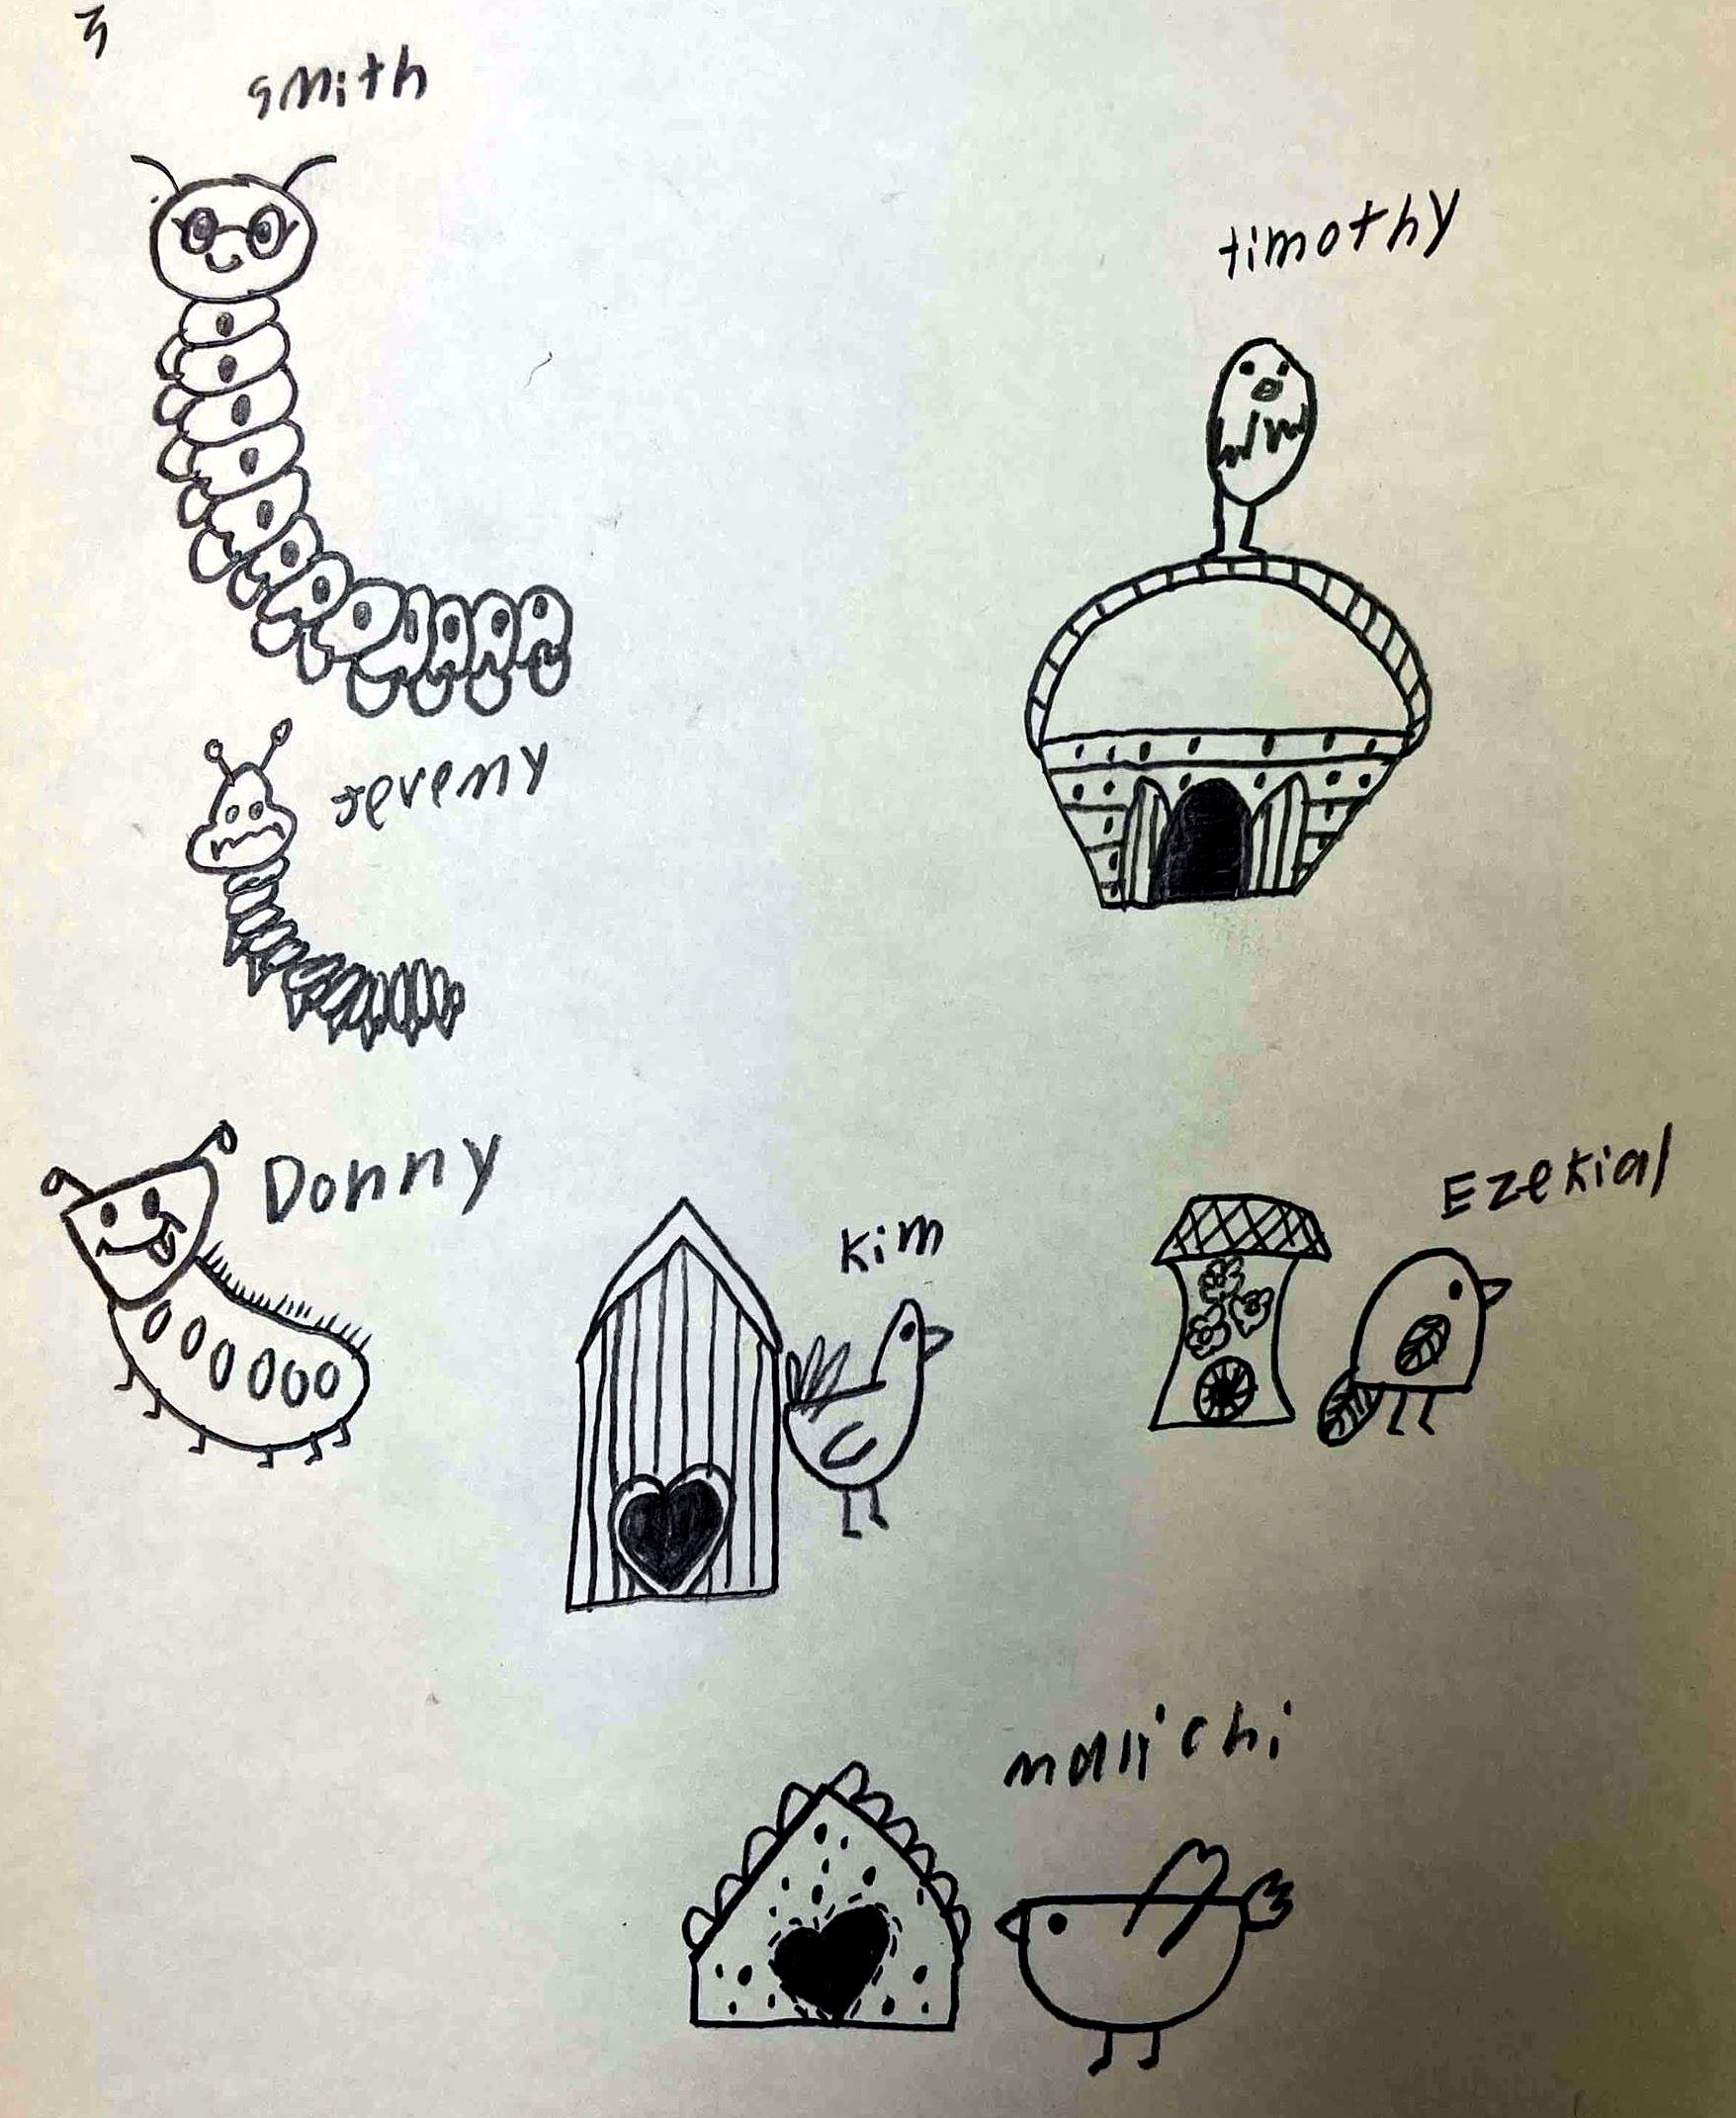 smith
timothy
Jeremy
Donny
Kim
Ezekial